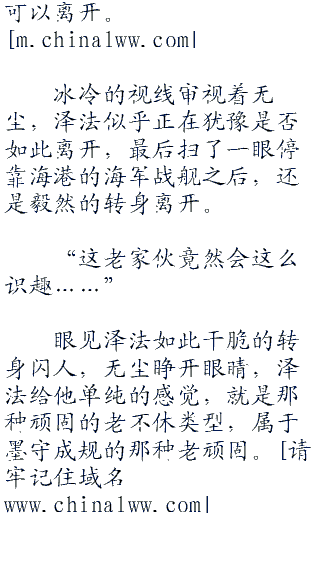 可以离开。
[m.china1ww.com|
冰冷的视线审视着无
尘，泽法似乎正在犹豫是否
如此离开，最后扫了一眼停
靠海港的海军战舰之后，还
是毅然的转身离开。
“这老家伙竟然会这么
识趣……”
眼见泽法如此干脆的转
身闪人，无尘睁开眼睛，泽
法给他单纯的感觉，就是那
种顽固的老不休类型，属于
墨守成规的那种老顽固。[请
牢记住域名
www.china1ww.com|